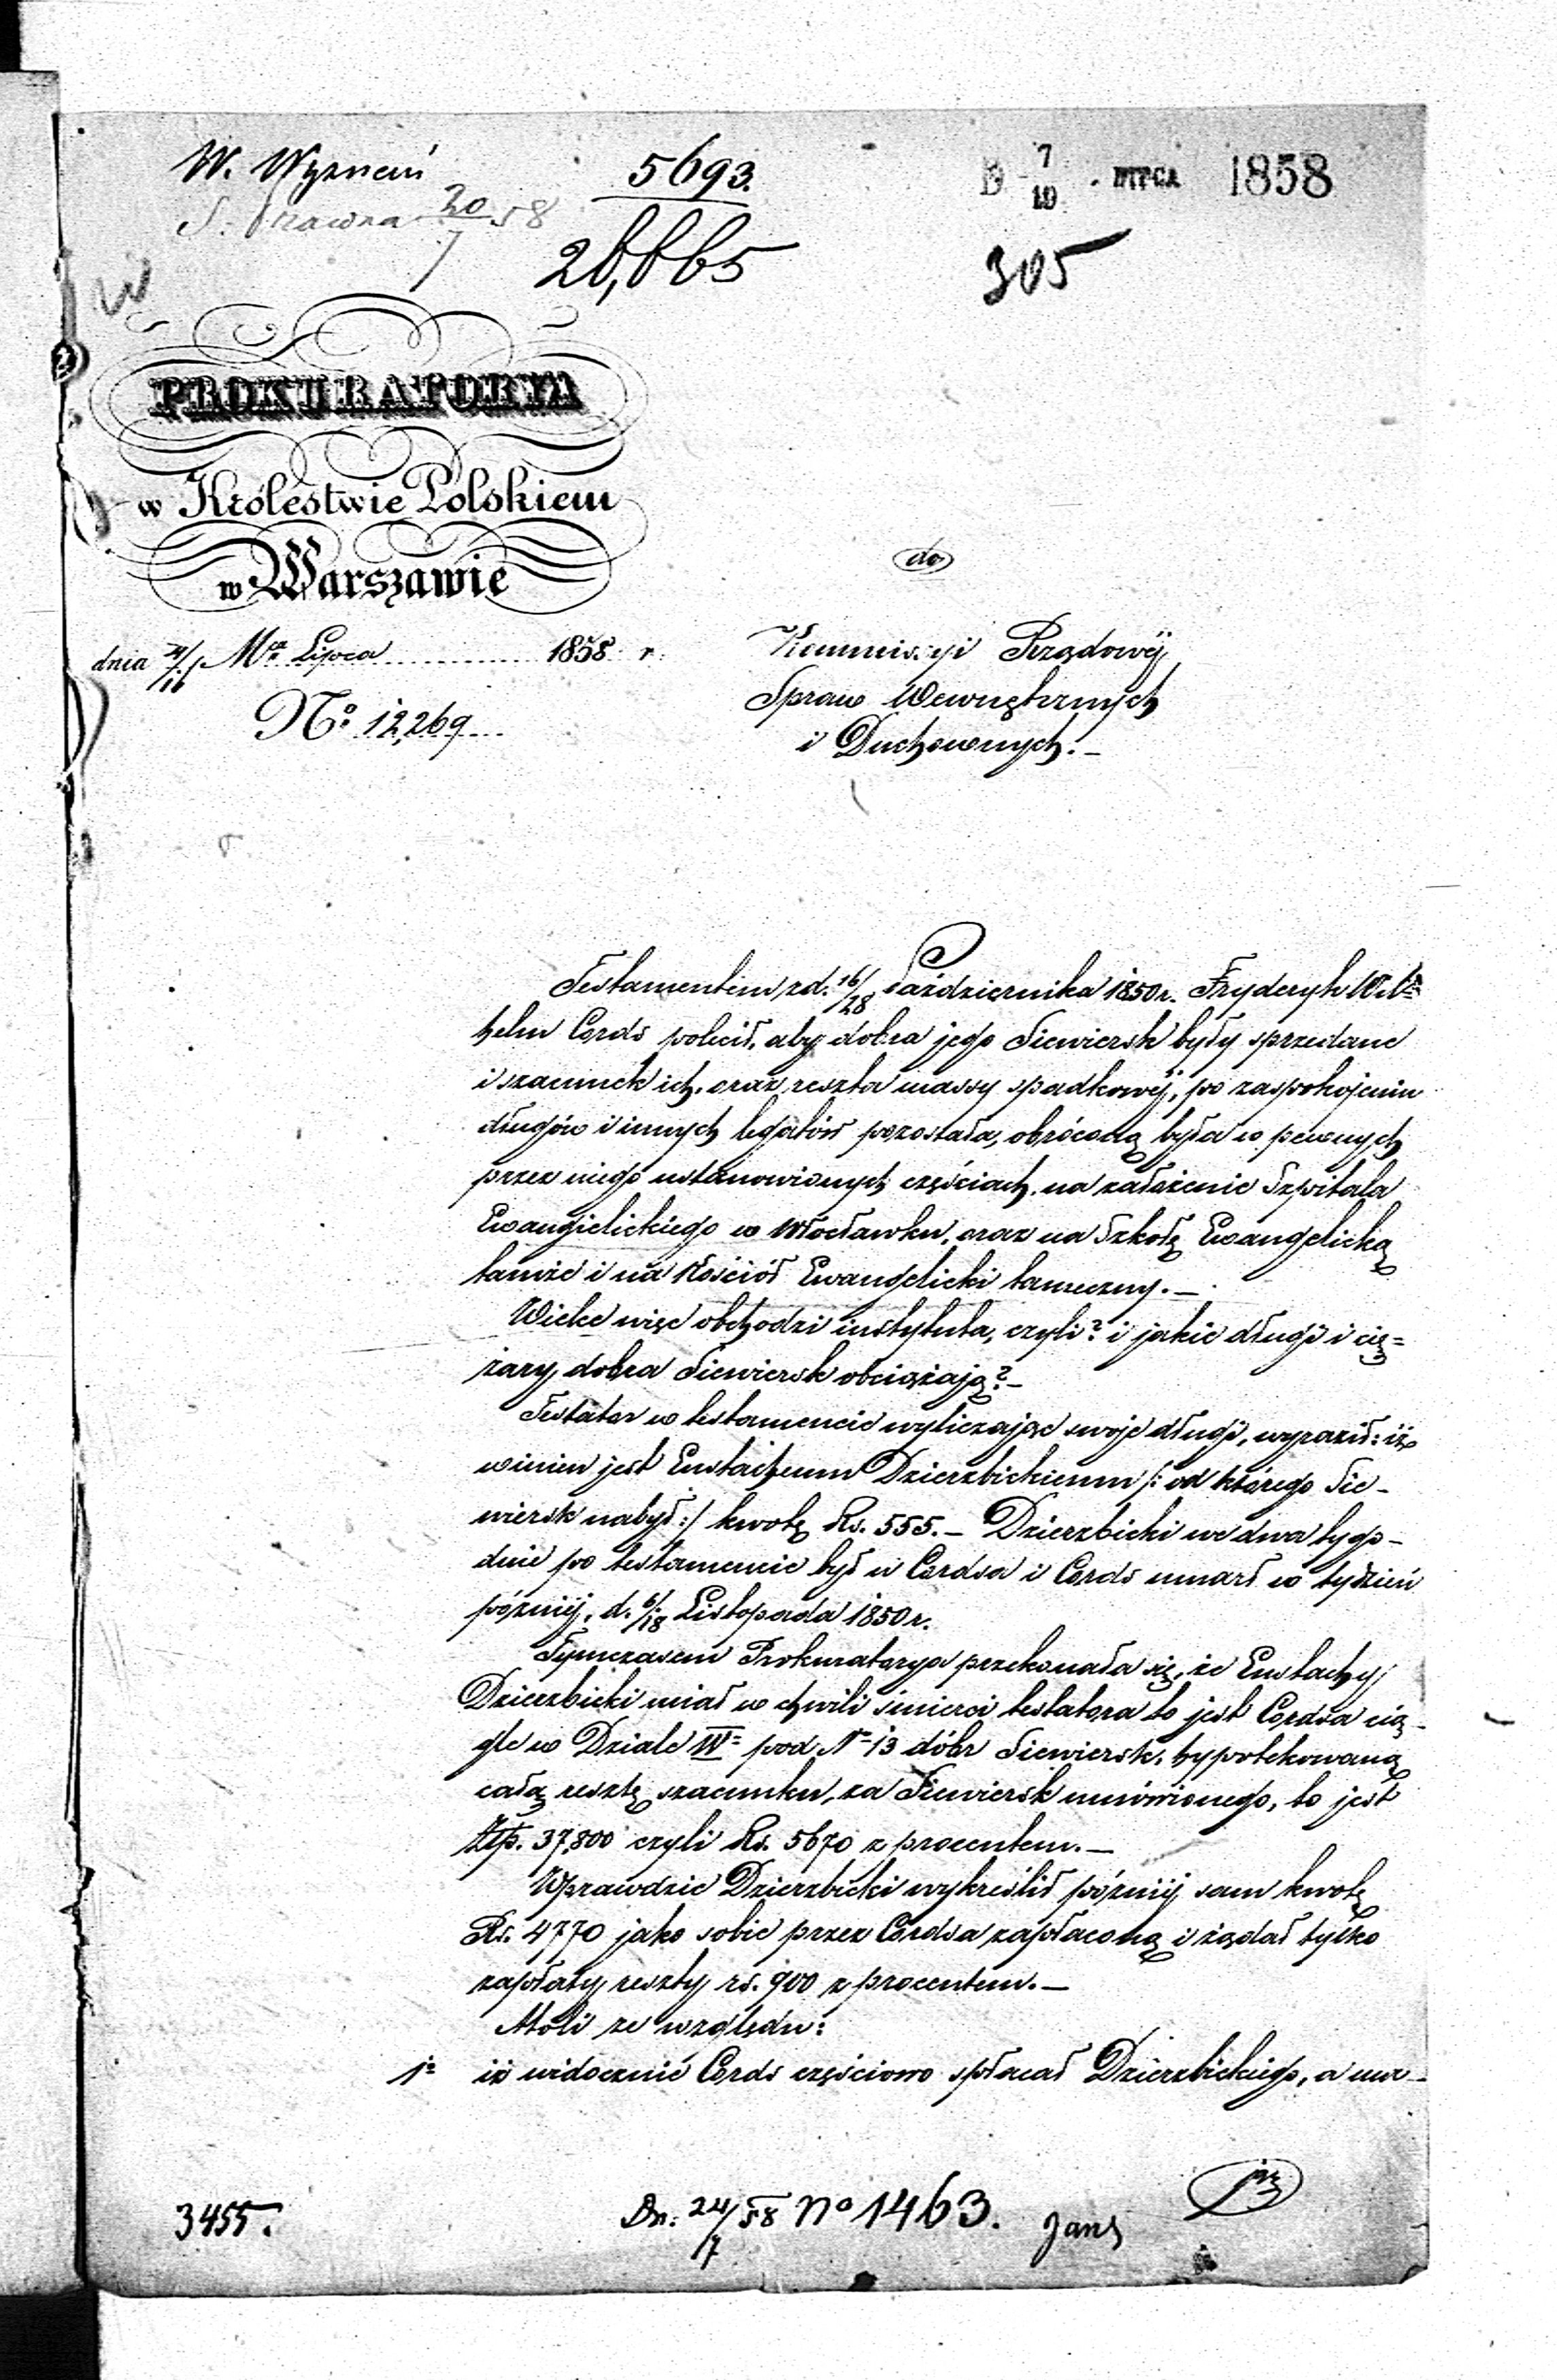 W. Wyznań
5693.
D 7/19 LIPCA 1858
S. Prawna 20/7 58
305
PROKURATORYA
w Królestwie Polskiem
w Warszawie
do
dnia 4/16 Mca Lipca 1858 r.
Kommissyi Rządowéj
Spraw Wewnętrznych
No 12,269
i Duchownych.—
Testamentem z d. 16/28 Października 1850 r. Fryderyk Wil=
helm Cords polecił, aby dobra jego Siewiersk były sprzedane
i szacunek ich, oraz reszta massy spadkowéj, po zaspokojeniu
długów i innych legatów pozostała, obróconą była w pewnych
przez niego ustanowionych częściach, na założenie Szpitala
Ewangielickiego w Włocławku, oraz na Szkołę Ewangelicką
tamże i na Kościół Ewangelicki tameczny.—
Wielce więc obchodzi instytuta, czyli? i jakie długi i cię=
żary dobra Siewiersk obciążają?—
Testator w testamencie wyliczając swoje długi, wyraził: iż
winien jest Eustachemu Dzierzbickiemu /: od którego Sie-
wiersk nabył :/ kwotę Rs. 555.— Dzierzbicki we dwa tygo-
dnie po testamencie był u Cordsa i Cords umarł w tydzień
późniéj, d. 6/18 Listopada 1850 r.
Tymczasem Prokuratorya przekonała się, że Eustachy
Dzierzbicki miał w chwili śmierci testatora to jest Cordsa cią-
gle w Dziale IV= pod No 13 dóbr Siewiersk, hypotekowaną
całą resztę szacunku, za Siewiersk umówionego, to jest
Złp. 37,800 czyli Rs. 5670 z procentem.—
Wprawdzie Dzierzbicki wykreślił późniéj sam kwotę
Rs. 4770 jako sobie przez Cordsa zapłaconą i żądał tylko
zapłaty reszty rs. 900 z procentem.—
Atoli ze względu:
1o iż widocznie Cords częściowo spłacał Dzierzbickiego, a me-
3455.
Dn: 24/7 58 No 1463.